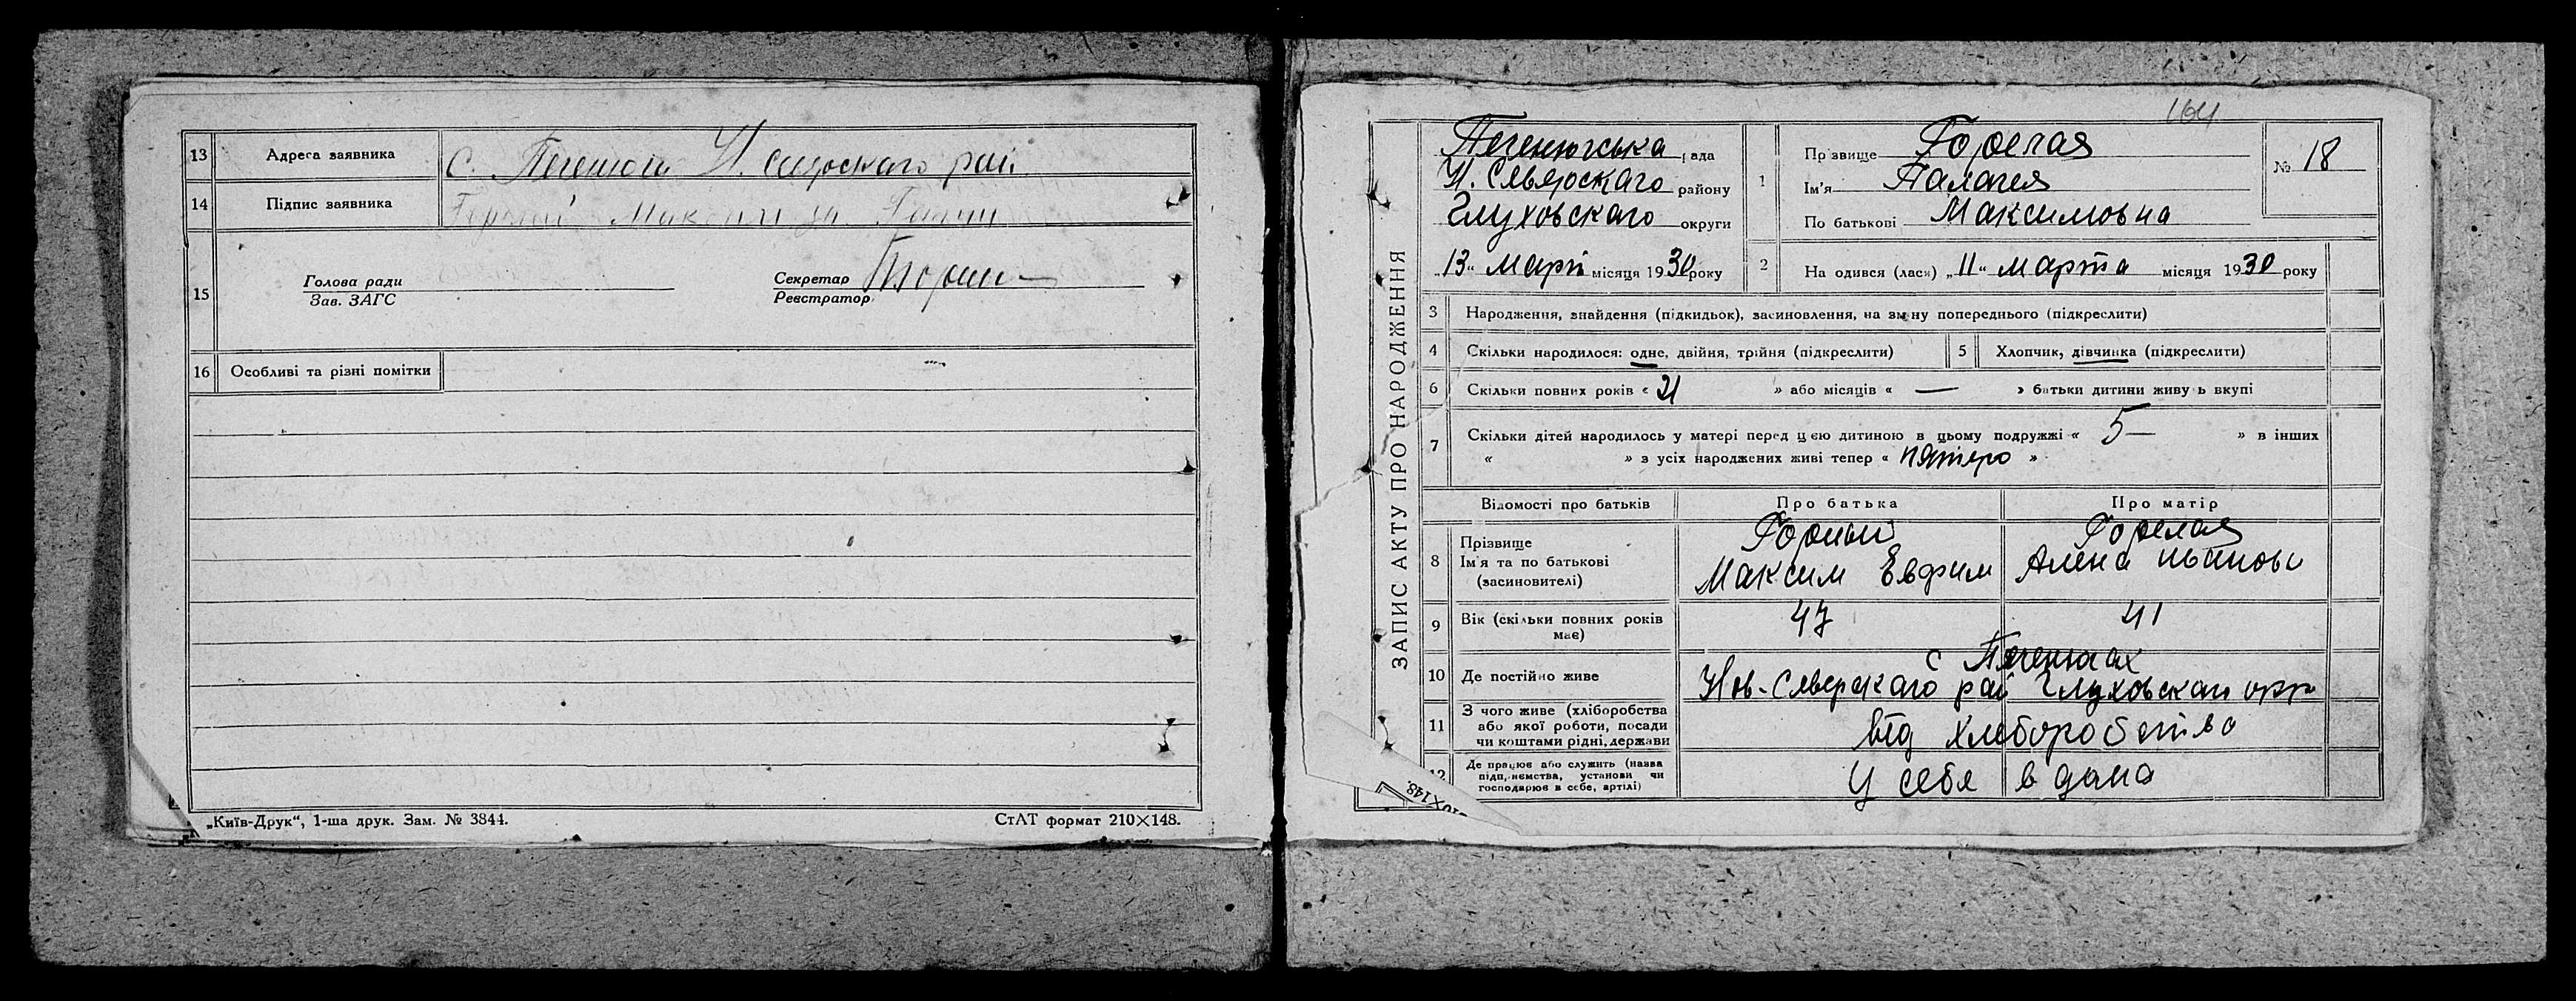 13 Адреса заявника С. Печенюги Н. Сіверскаго рай.
14 Підпис заявника Горелий Максим
15 Голова ради
Зав. ЗАГС
Секретар
Реєстратор
16 Особливі та різні помітки
„Київ-Друк“, 1-ша друк. Зам. № 3844.
СтАТ формат 210×148.
164
ЗАПИС АКТУ ПРО НАРОДЖЕННЯ
Печенюгська рада
Н. Сіверскаго району
Глуховскаго округи
„13“ март місяця 1930 року
1 Прізвище Горелая
Ім'я Палагея
По батькові Максимовна
№ 18
2 На одився (лася) „11“ марта місяця 1930 року
3 Народження, знайдення (підкидьок), засиновлення, на зміну попереднього (підкреслити)
4 Скільки народилося: одне, двійня, трійня (підкреслити)
5 Хлопчик, дівчинка (підкреслити)
6 Скільки повних років « 21 » або місяців « — » батьки дитини живуть вкупі
7 Скільки дітей народилось у матері перед цією дитиною в цьому подружжі « 5 — » в інших
« » з усіх народжених живі тепер « пятеро »
Відомості про батьків Про батька Про матір
8 Прізвище
Ім'я та по батькові
(засиновителі)
Горилий
Максим Евфим
Горелая
Алена Иванов
9 Вік (скільки повних років
має)
47 41
10 Де постійно живе
с Печенюгах
Нов-Северскаго рай Глуховскаго
11 З чого живе (хліборобства
або якої роботи, посади
чи коштами рідні, держави
від хлеборобства
12 Де працює або служить (назва
підприємства, установи чи
господарює в себе, артілі)
У себя в дома
10×148.